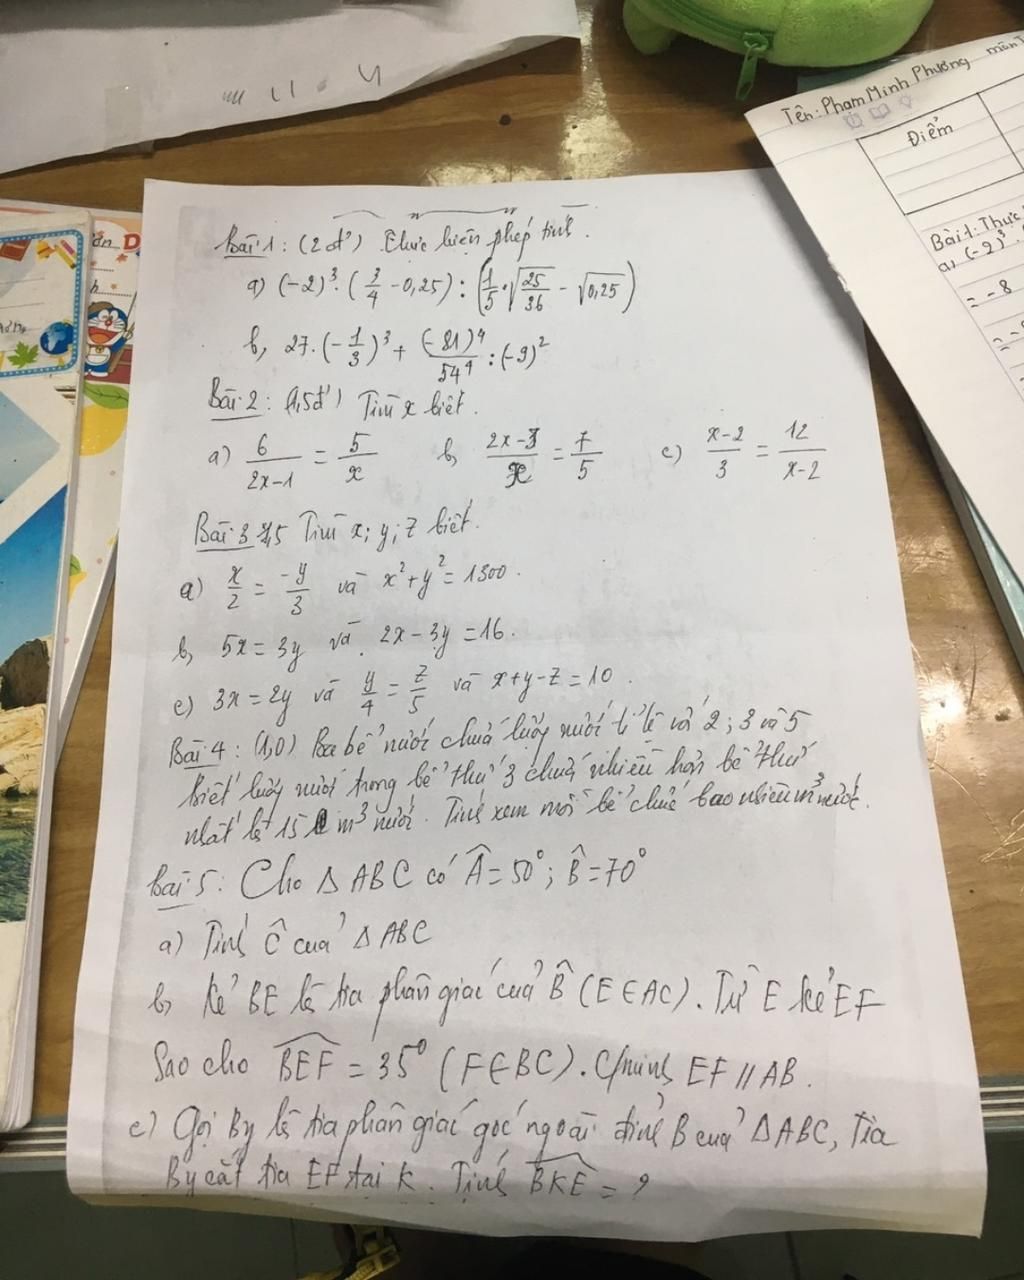 Tên: Phạm Minh Phương môn T
Điểm
Bài 1: Thực
a, (-2)³.
= -8
Bài 1: (2đ') Thực hiện phép tính.
a) (-2)³.(3/4 - 0,25) : (1/5.√25/36 - √0,25)
b, 27.(-1/3)³ + (-81)⁴/54⁴ : (-9)²
Bài 2: (1,5đ') Tìm x biết.
a) 6/2x-1 = 5/x b, 2x-3/x = 7/5 c) x-2/3 = 12/x-2
Bài 3 1,5 Tìm x; y; z biết.
a) x/2 = -y/3 và x²+y² = 1300.
b, 5x = 3y và 2x - 3y = 16.
c) 3x = 2y và y/4 = z/5 và x+y-z = 10.
Bài 4: (1,0) Ba bể nước chứa lượng nước tỉ lệ với 2; 3 và 5
biết lượng nước trong bể thứ 3 chứa nhiều hơn bể thứ
nhất là 15 m³ nước. Tính xem mỗi bể chứa bao nhiêu m³ nước.
Bài 5: Cho Δ ABC có Â = 50°; B̂ = 70°
a) Tính Ĉ của Δ ABC
b, Kẻ BE là tia phân giác của B̂ (E∈AC). Từ E kẻ EF
Sao cho BEF = 35° (F∈BC). C/minh EF // AB.
c) Gọi By là tia phân giác góc ngoài đỉnh B của ΔABC, Tia
By cắt tia EF tại K. Tính BKE = ?